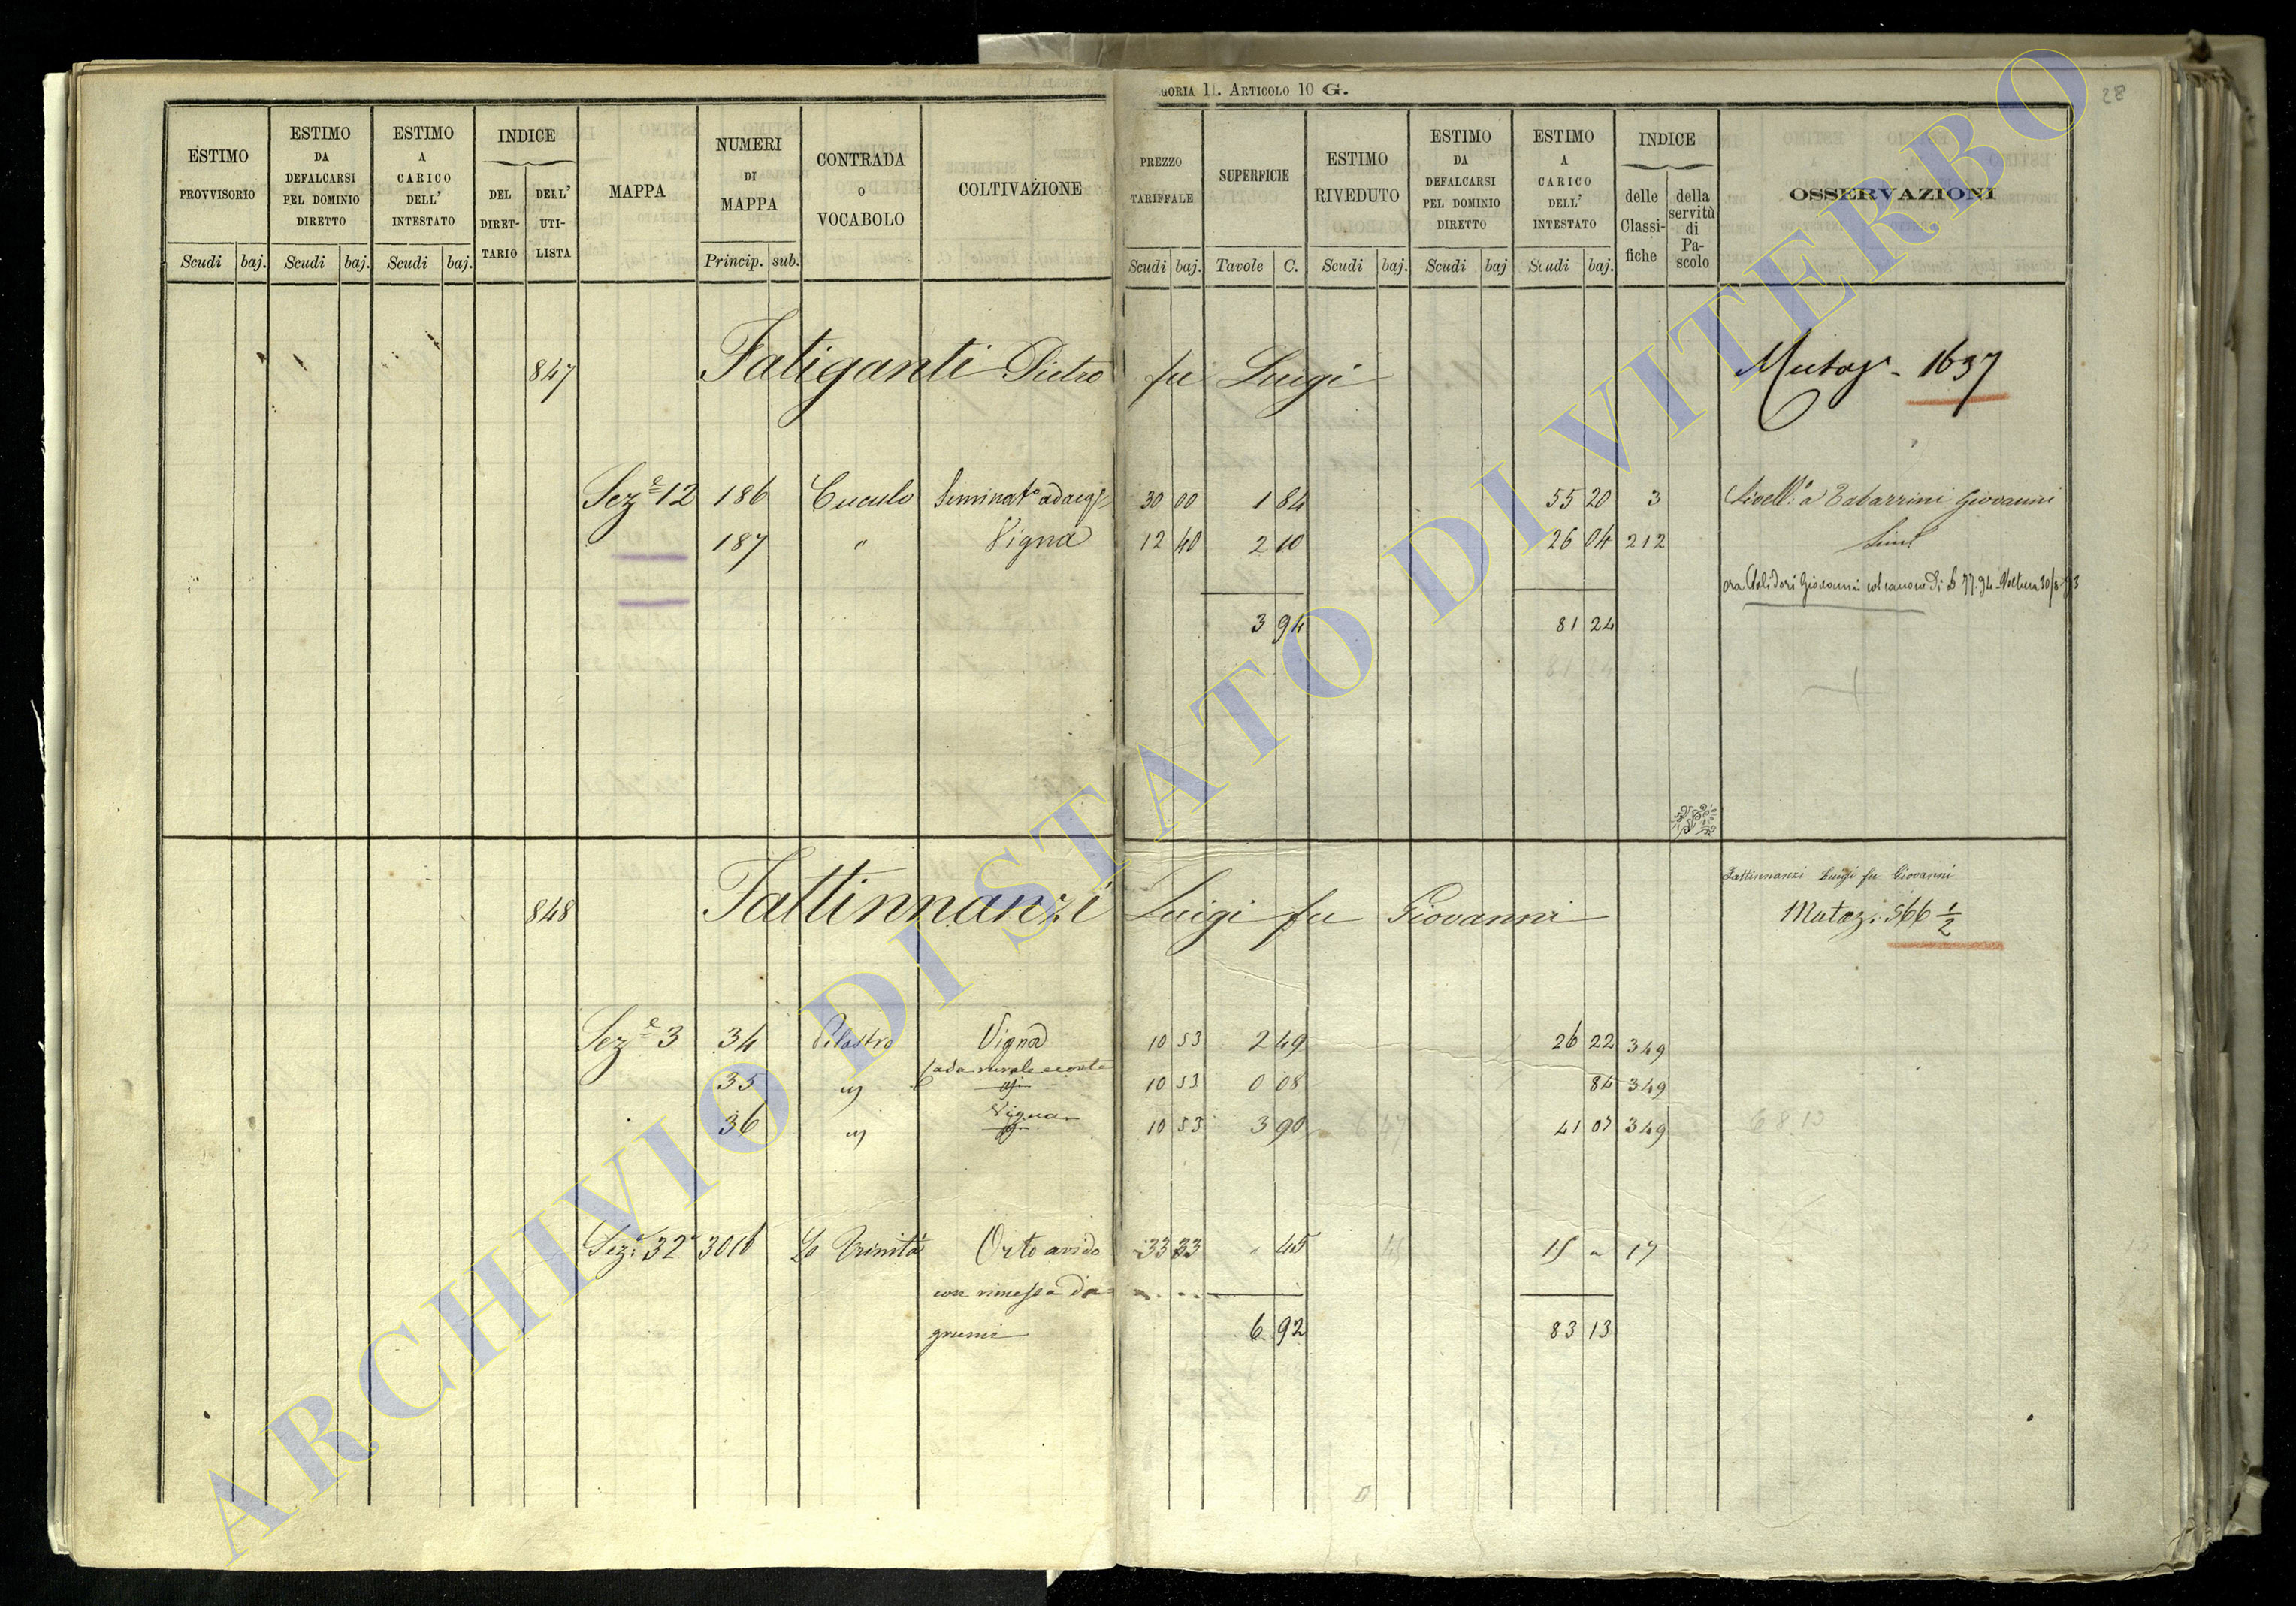 GORIA 11. ARTICOLO 10 G.
28
ESTIMO PROVVISORIO
ESTIMO DA DEFALCARSI PEL DOMINIO DIRETTO
ESTIMO A CARICO DELL' INTESTATO
INDICE
DEL DIRET-TARIO
DELL' UTI-LISTA
MAPPA
NUMERI DI MAPPA
CONTRADA O VOCABOLO
COLTIVAZIONE
PREZZO TARIFFALE
SUPERFICIE
ESTIMO RIVEDUTO
ESTIMO DA DEFALCARSI PEL DOMINIO DIRETTO
ESTIMO A CARICO DELL' INTESTATO
INDICE
delle Classi-fiche
della servitù di Pa-scolo
OSSERVAZIONI
Scudi baj. Scudi baj. Scudi baj. Princip. sub. Scudi baj. Tavole C. Scudi baj. Scudi baj Scudi baj.
847 Fatiganti Pietro fu Luigi 1637
Sez.e 12 186 Cuculo Seminat.o 30 00 1 84 55 20 3 Livell.o a Tabarrini Giovanni
187 " Vigna 12 40 2 10 26 04 212
ora Polidori Giovanni col canone di
3 94 81 24
848 Fattinnanzi Luigi fu Giovanni
Fattinnanzi Luigi fu Giovanni
Mutaz. 566 1/2
Sez.e 3 34 Pilastro Vigna 10 53 2 49 26 22 349
35 " Casa rurale e corte 10 53 0 08 84 349
36 " Vigna 10 53 3 90 41 07 349
Sez.e 32 3016 La Trinità Orto arido 33 33 " 45 15 " 17
con rimessa d'a
grumi 6 92 83 13
ARCHIVIO DI STATO DI VITERBO